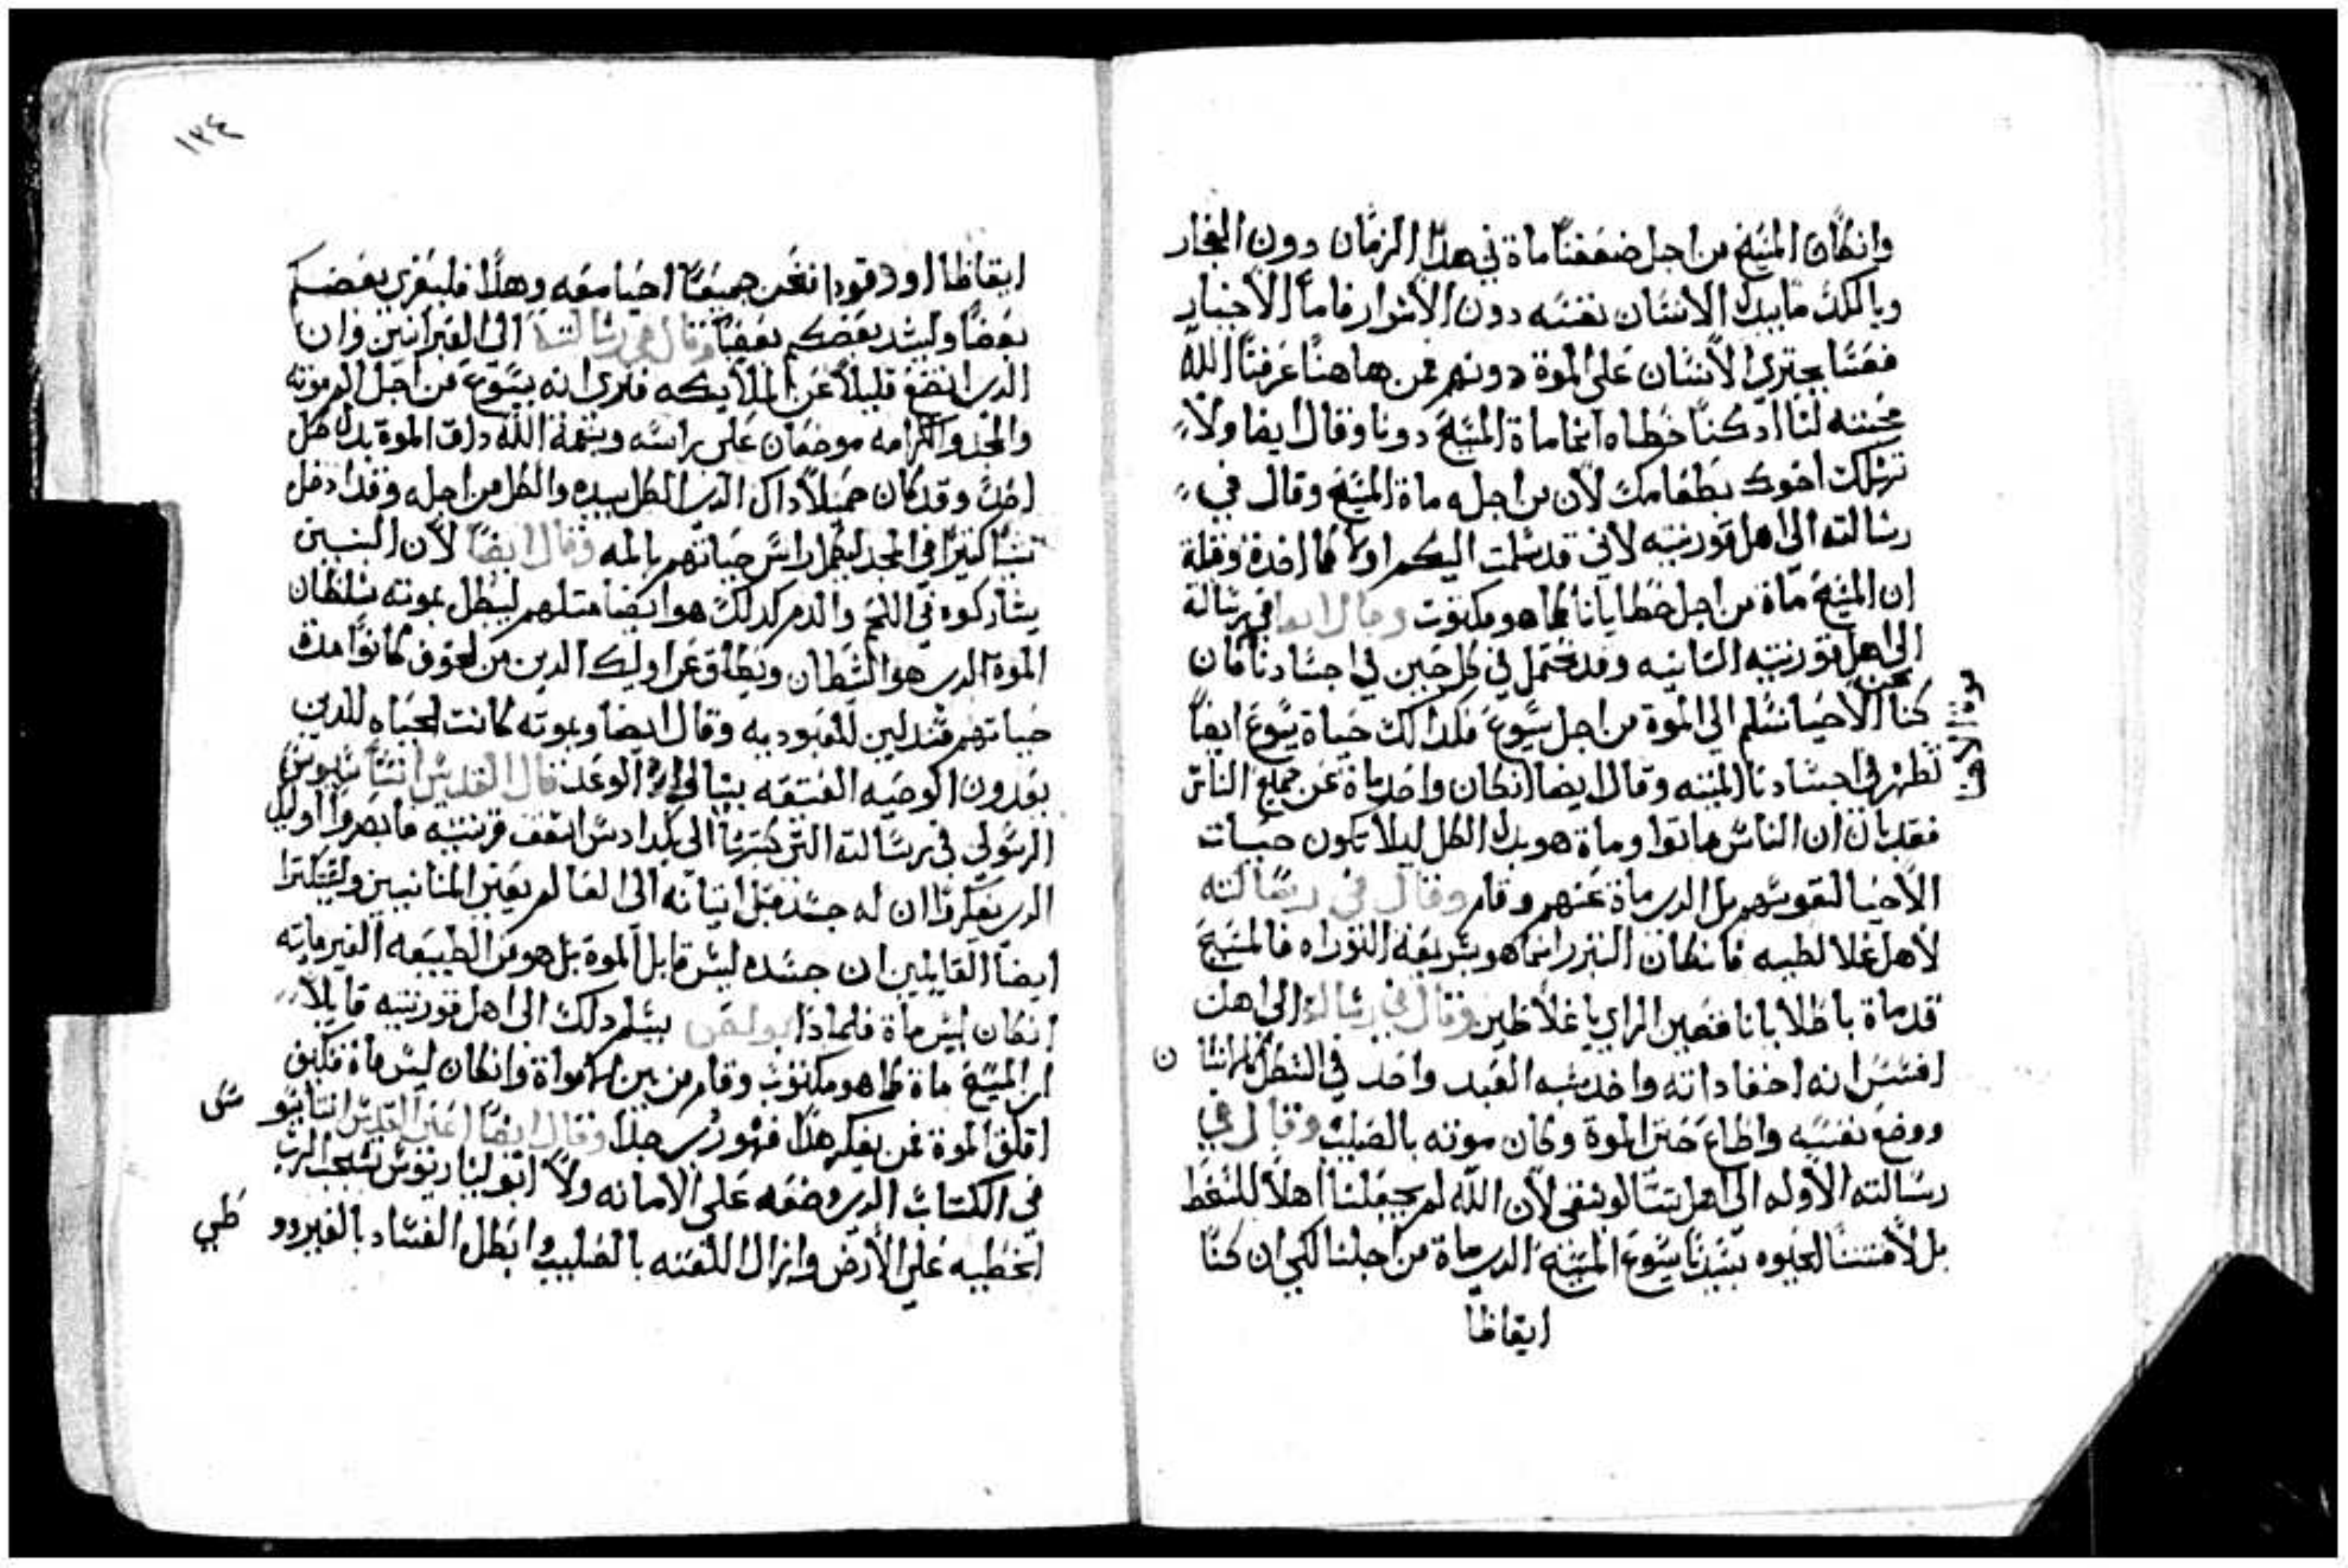 وانكان المسيح من اجل ضعفنا ماة في هدا الزمان دون الفجار
وبالكد ما يبدل الانسان نفسه دون الاشرار فاما الاخيار
فعسا يجتري الانسان على الموة دونهم فمن هاهنا عرفنا الله
محبته لنا اد كنا خطاه انما ماة المسيح دوننا وقال ايضا ولا
تهلك اخوك بطعامك لان من اجله ماة المسيح وقال في
رسالته الى اهل قورنتيه لاني قد سلمت اليكم اولا كما اخدة وقلة
ان المسيح ماة من اجل خطايانا كما هو مكتوب وقال ايضا في رسالة
الى اهل قورنتيه التانيه وقد نحتمل في كل حين في اجسادنا فان
نحن
كنا الاحيا نسلم الى الموة من اجل يسوع فكدالك حياة يسوع ايضا
تظهر في اجسادنا الميته وقال ايضا انكان واحد ماة عن جميع الناس
فقد بان ان الناس ماتوا وماة هو بدل الكل ليلا تكون حيات
الاحيا لنفوسهم بل الدي ماة عنهم وقام وقال في رسالته
لاهل غلاطيه فانكان البر انما هو بشريعة التوراه فالمسيح
قد ماة باطلا يا ناقصين الراي يا غلاطين وقال في رسالته الى اهل
افسس انه اخفا داته واخد شبه العبد واخد في الشكل كانسا ن
ووضع نفسه واطاع حتى الموة وكان موته بالصليب وقال في
رسالته الاوله الى اهل تسالونيقي لان الله لم يجعلنا اهلا للسخط
بل لاقتنا الحيوه بسيدنا يسوع المسيح الدي ماة من اجلنا لكي ان كنا
ايقاظا
١٣٤
ايقاظا او رقودا فنحن جميعا احيا معه وهدا فليعزي بعضكم
بعضا وليشد بعضكم بعضا وقال في رسالته الى العبرانيين وان
الدي اتضع قليلا عن الملايكه فنرى انه يسوع من اجل الم موته
والمجد والكرامه موضعان على راسه وبنعمة الله داق الموة بدل كل
احد وقد كان جميلا داك الدي الكل بيده والكل من اجله وقد ادخل
كتيرا في المجد ليكمل راس حياتهم بالمه وقال ايضا لان البنين
يشاركوه في اللحم والدم كدلك هو ايضا متلهم ليبطل بموته سلطان
الموة الدي هو الشطان ويطلق اوليك الدين من الخوف كانوا مدة
حياتهم للعبوديه وقال ايضا وبموته كانت لحياه للدين
الوصيه العتيقه الوعد قال القديس اتناسيوس
الرسولي في رسالته التي كتبها الى اسقف قرنتيه اوليك
الدي يفكروا ان له جسد قبل اتيانه الى العالم يعني المنانيين وليتكتوا
ايضا القايلين ان جسده ليس قابل الموة بل هو من الطبيعه الغير مايته
انكان ليس ماة فلماذا بولس يسلم دلك الى اهل قورنتيه قايلا
ان المسيح ماة كما هو مكتوب وقام من بين الاموات وانكان ليس ماة فكيف
اقلق الموة فمن يفكر هدا فهو جدا وقال ايضا اعني القديس اتناسيو سى
في الكتاب الدي وضعه على الامانه ولا ابوليناريوس
الخطيه على الارض وازال اللعنه بالصليب وابطل الفساد بالقبر